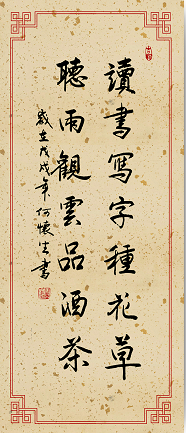 讀書寫字種花草
聽雨觀雲品酒茶
歲在戊戌年何懷生書